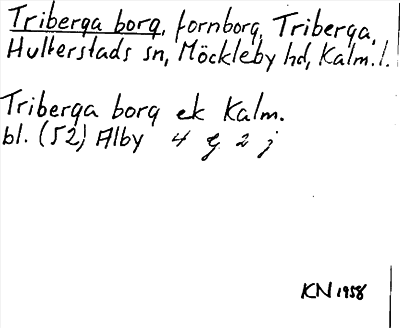 Triberga borg, fornborg, Triberga,
Hulterstads sn, Möckleby hd, Kalm. l.
Triberga borg ek Kalm.
bl. (52) Alby 4 g 2 j
KN 1958